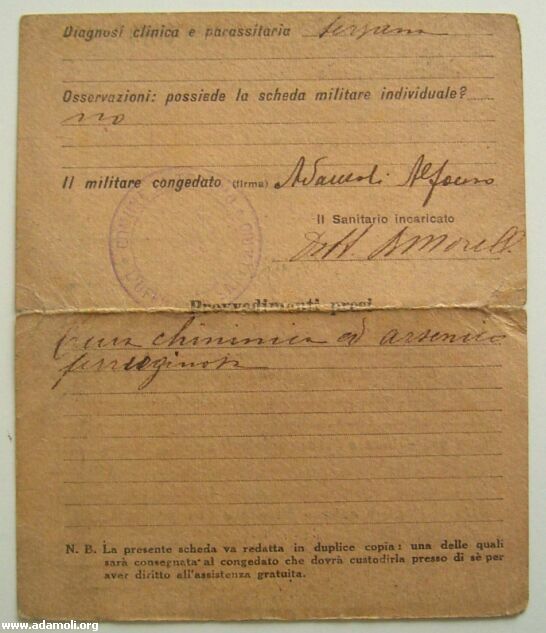 Diagnosi clinica e parassitaria terzana
Osservazioni: possiede la scheda militare individuale?
no
Il militare congedato (firma) Adamoli Alfonso
Il Sanitario incaricato
Dott.
Provvedimenti presi
Cura chininica ed arsenico
ferruginosa
N. B. La presente scheda va redatta in duplice copia: una delle quali
sarà consegnata al congedato che dovrà custodirla presso di sè per
aver diritto all'assistenza gratuita.
www.adamoli.org